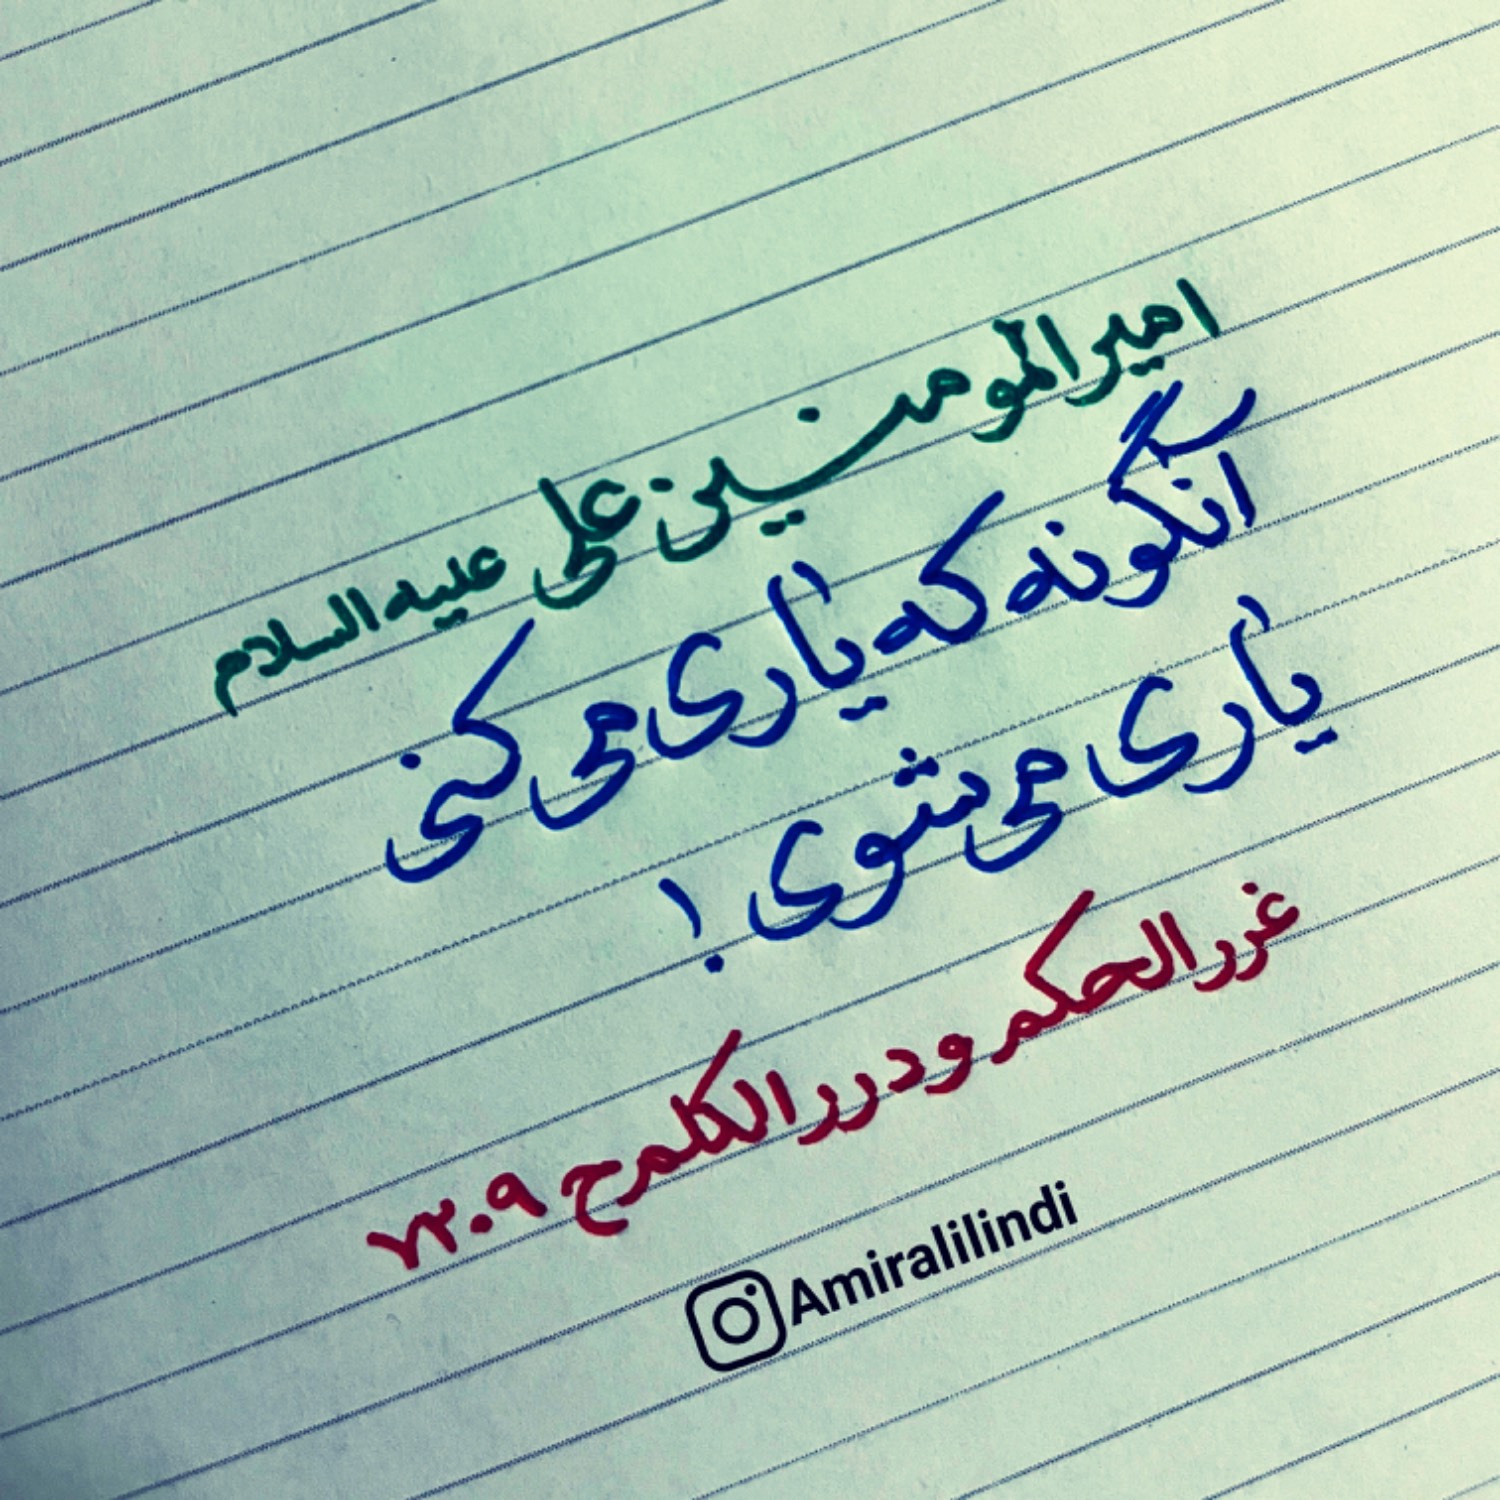 امیرالمومنین علی علیه السلام
آنگونه که یاری می کنی
یاری می شوی !
غررالحکم و دررالکلم ح ۷۲۰۹
Amiralilindi